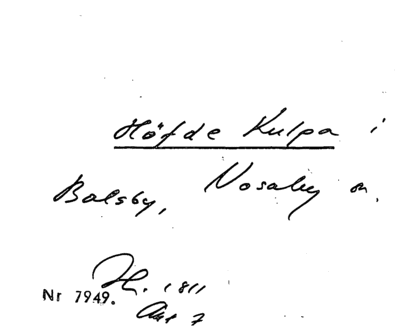 Höfde Kulpa i
Balsby, Nosaby sn.
H. 1811
Nr 7949.
Akt 7